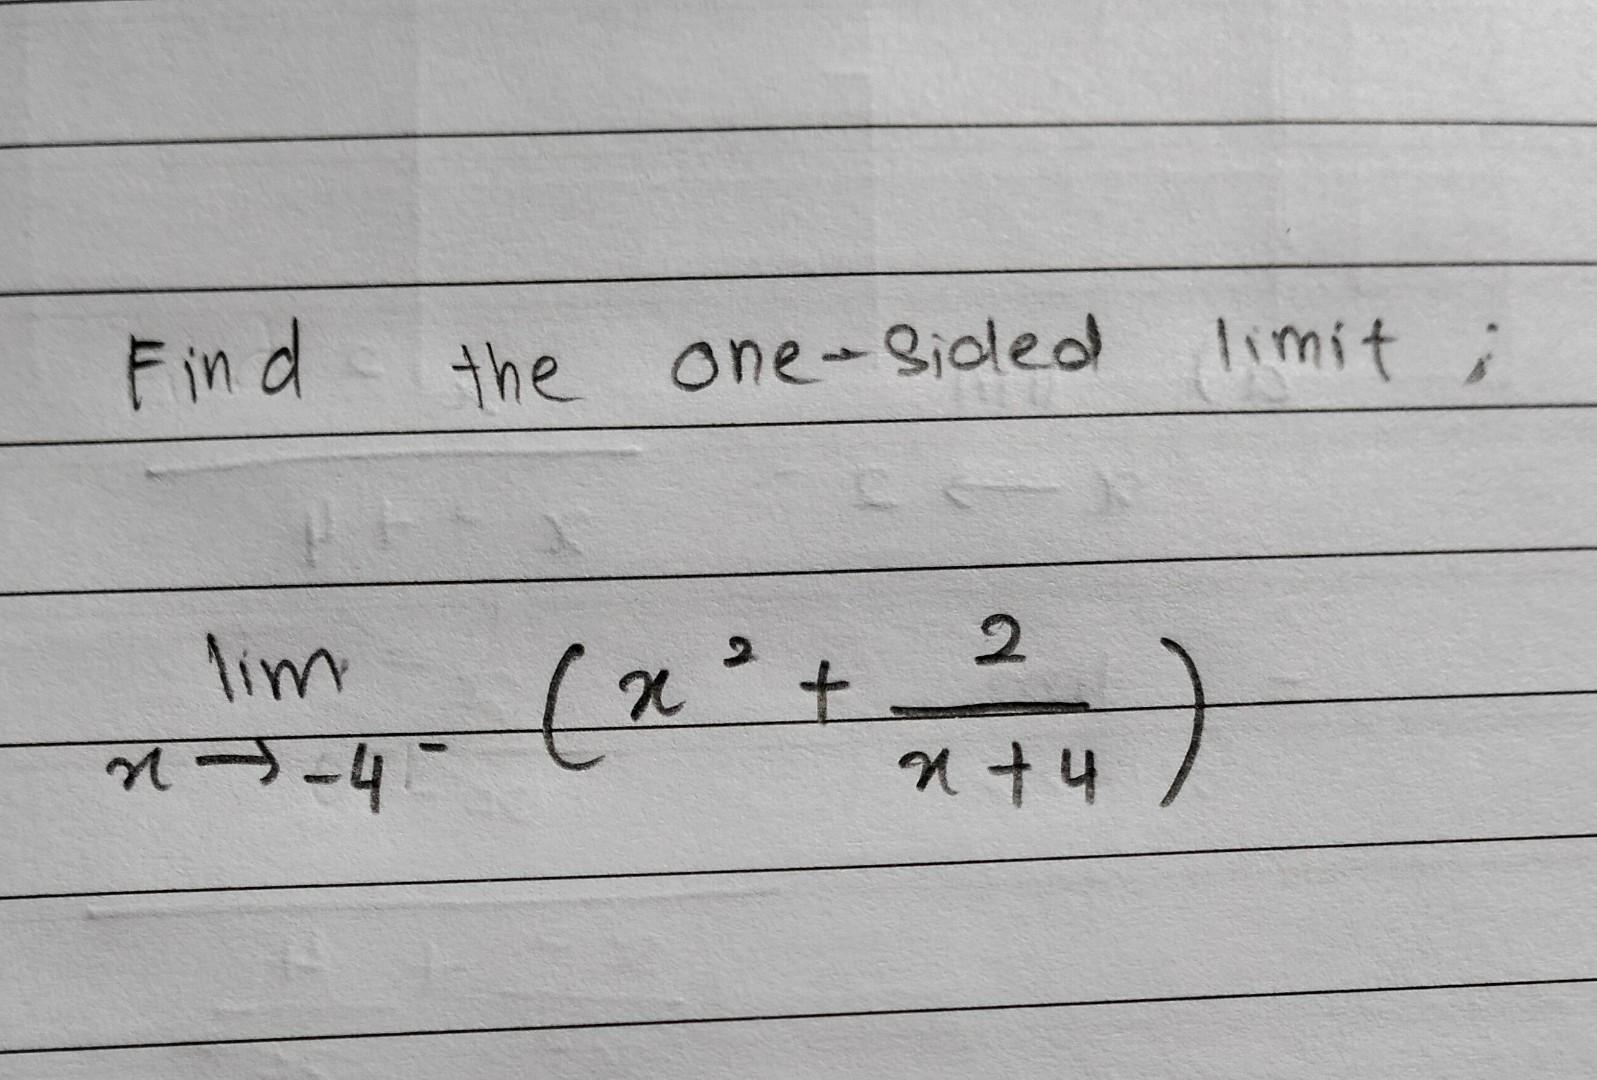 Find the one-sided limit;
lim x→-4⁻ (x² + 2/(x+4))